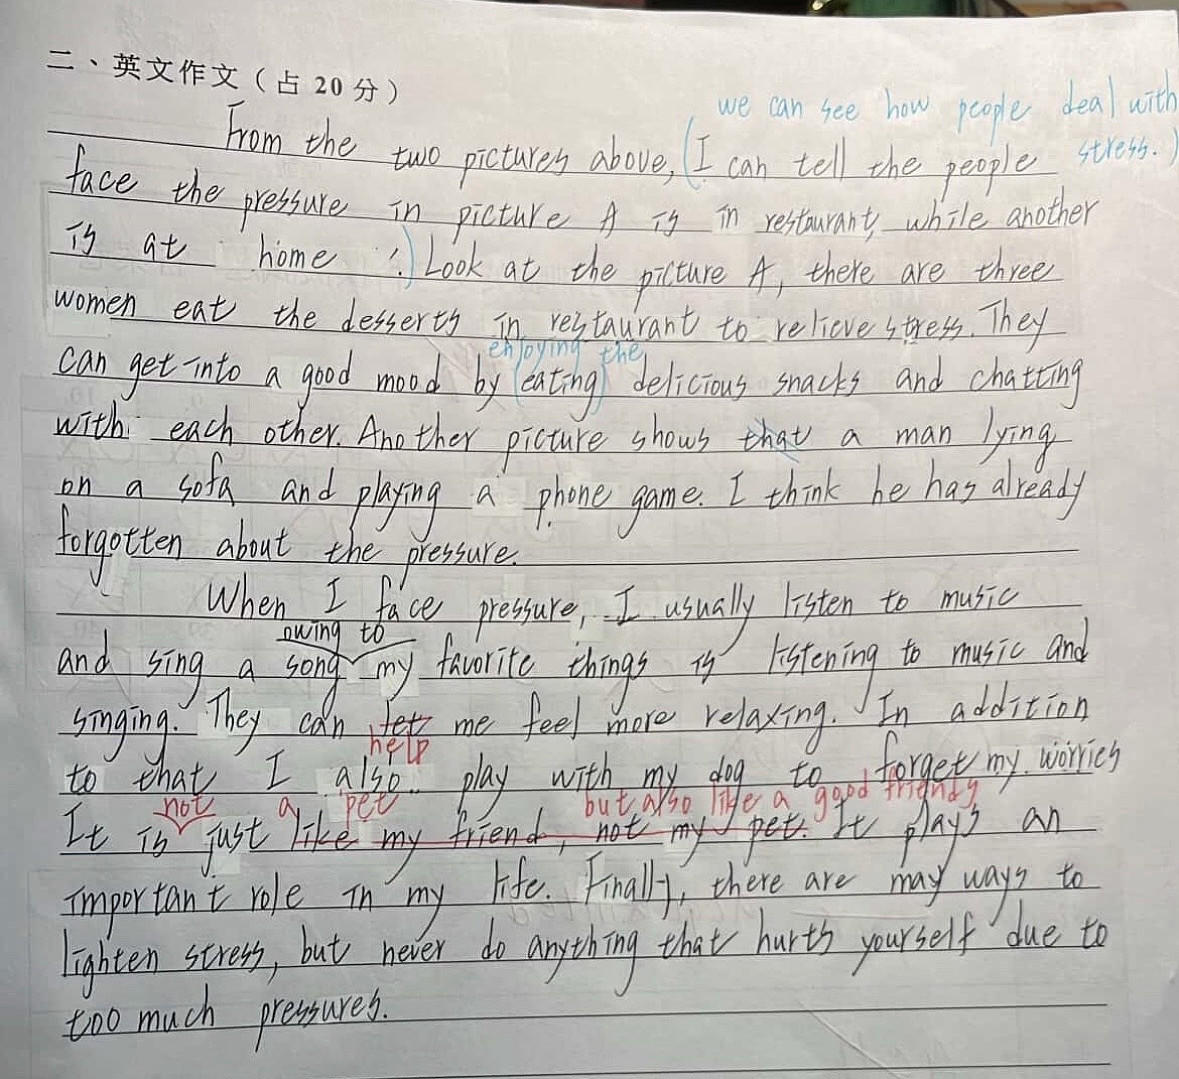 二、英文作文（占 20 分）
we can see how people deal with
From the two pictures above, (I can tell the people stress.)
face the pressure in picture A is in restaurant, while another
is at home .) Look at the picture A, there are three
women eat the desserts in restaurant to relieve stress. They
enjoying the
can get into a good mood by (eating) delicious snacks and chatting
with each other. Another picture shows that a man lying
on a sofa and playing a phone game. I think he has already
forgotten about the pressure.
When I face pressure, I usually listen to music
owing to
and sing a song my favorite things is listening to music and
singing. They can let me feel more relaxing. In addition
help
to that I also play with my dog to forget my worries
not a pet but also like a good friend
It is just like my friend, not my pet. It plays an
important role in my life. Finally, there are may ways to
lighten stress, but never do anything that hurts yourself due to
too much pressures.